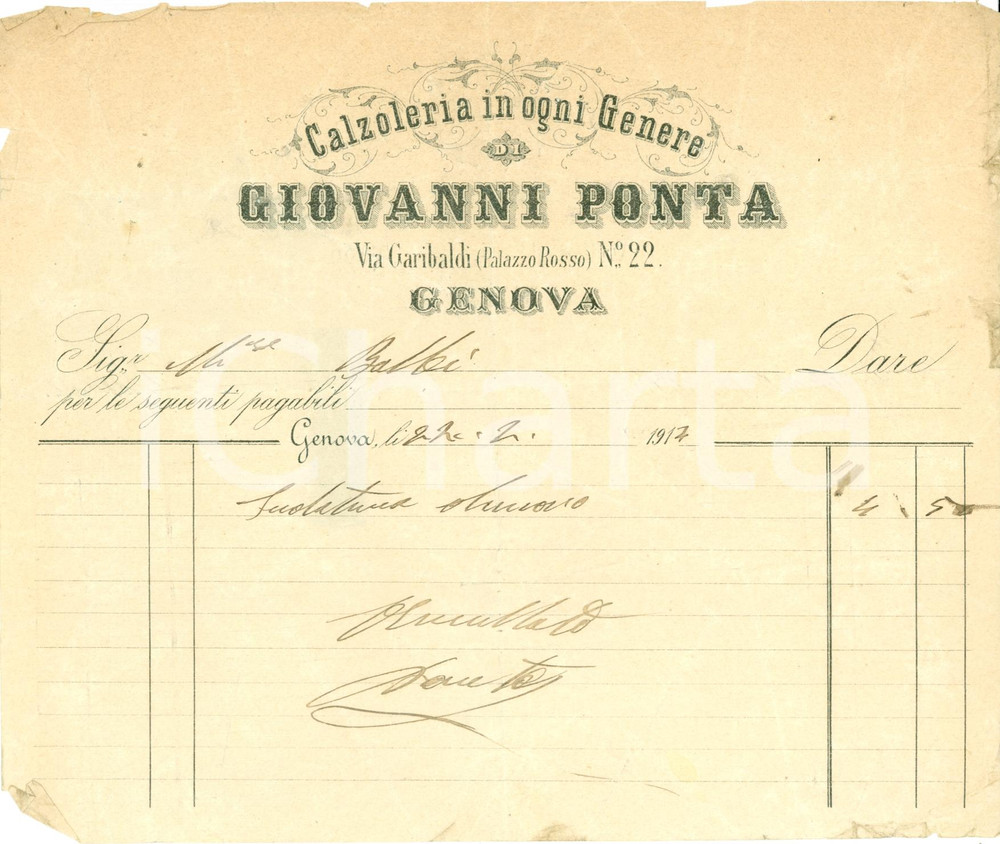 Calzoleria in ogni Genere
DI
GIOVANNI PONTA
Via Garibaldi (Palazzo Rosso) N.º 22.
GENOVA
Sig.r M.se Balbi Dare
per le seguenti pagabili
Genova, li 22. 2. 1912
Suolatura 4 50
Ponta
iCharta